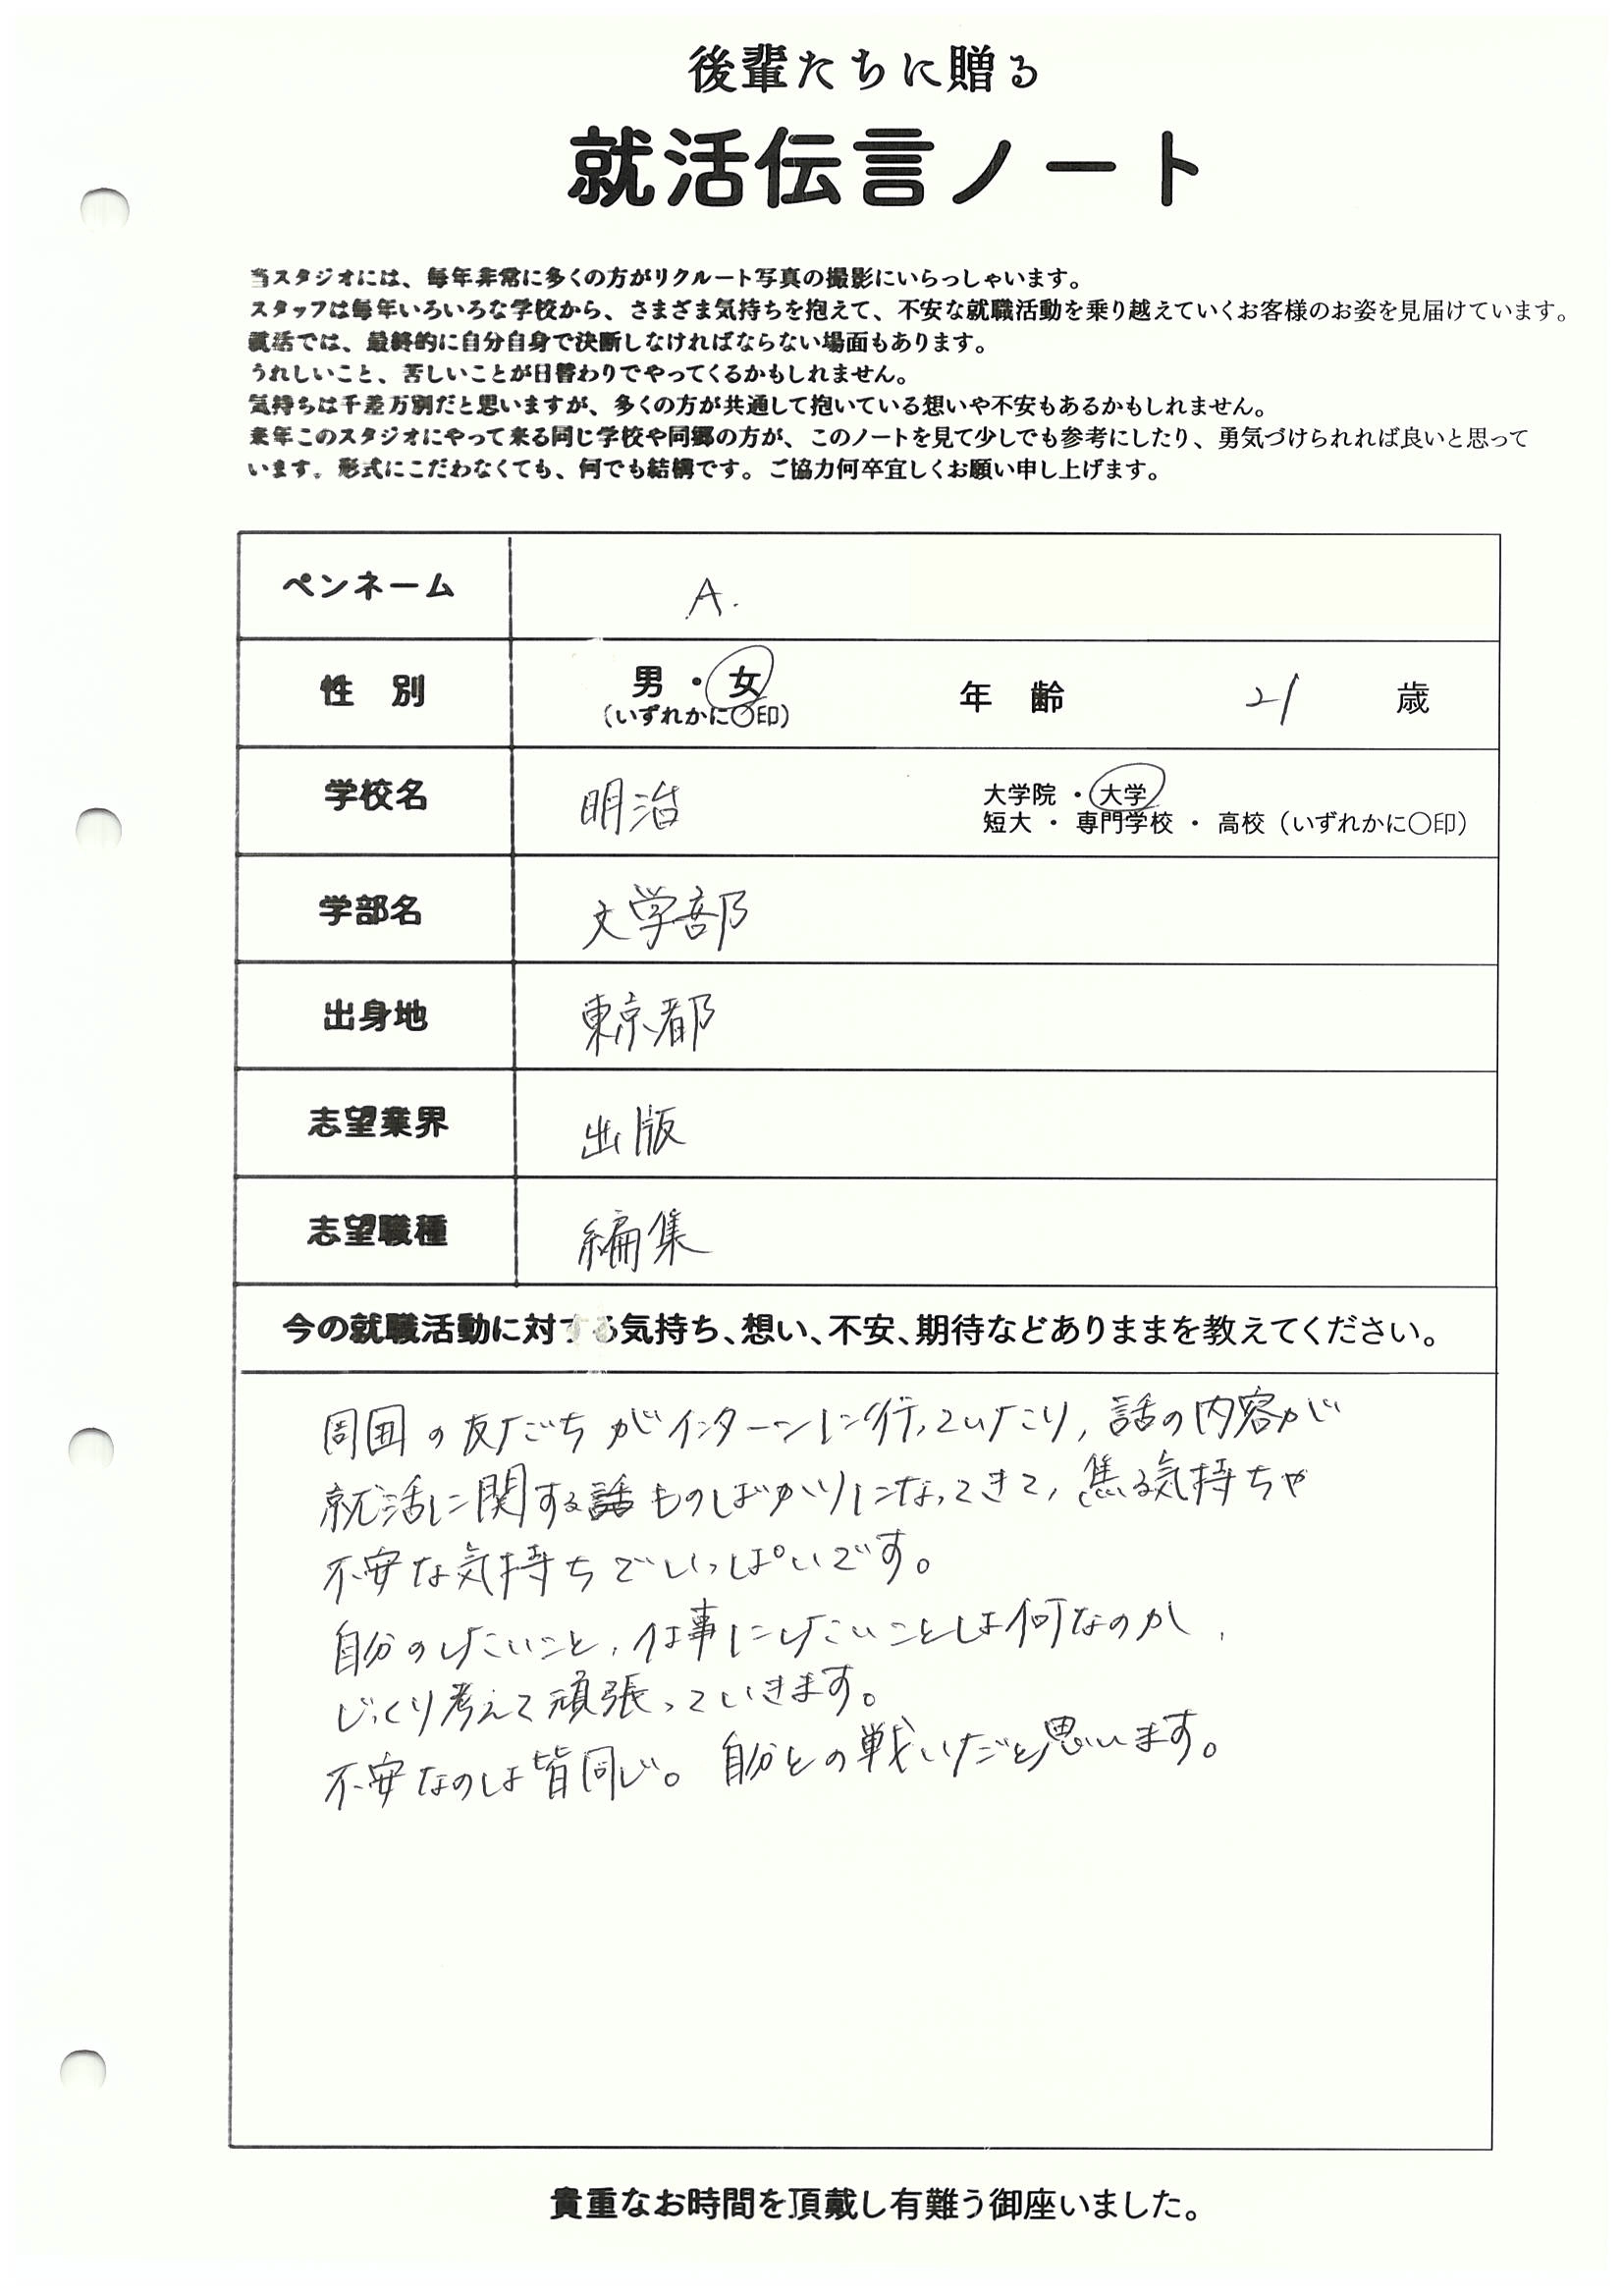 後輩たちに贈る
就活伝言ノート
当スタジオには、毎年非常に多くの方がリクルート写真の撮影にいらっしゃいます。
スタッフは毎年いろいろな学校から、さまざま気持ちを抱えて、不安な就職活動を乗り越えていくお客様のお姿を見届けています。
就活では、最終的に自分自身で決断しなければならない場面もあります。
うれしいこと、苦しいことが日替わりでやってくるかもしれません。
気持ちは千差万別だと思いますが、多くの方が共通して抱いている想いや不安もあるかもしれません。
来年このスタジオにやって来る同じ学校や同郷の方が、このノートを見て少しでも参考にしたり、勇気づけられれば良いと思って
います。形式にこだわなくても、何でも結構です。ご協力何卒宜しくお願い申し上げます。
ペンネーム A.
性 別 男・女 年 齢 21 歳
(いずれかに〇印)
学校名 明治 大学院 ・ 大学
短大 ・ 専門学校 ・ 高校(いずれかに〇印)
学部名 文学部
出身地 東京都
志望業界 出版
志望職種 編集
今の就職活動に対する気持ち、想い、不安、期待などありままを教えてください。
周囲の友だちがインターンに行っていたり、話の内容が
就活に関するものばかりになってきて、焦る気持ちや
不安な気持ちでいっぱいです。
自分のしたいこと、仕事にしたいことは何なのか、
じっくり考えて頑張っていきます。
不安なのは皆同じ。自分との戦いだと思います。
貴重なお時間を頂戴し有難う御座いました。